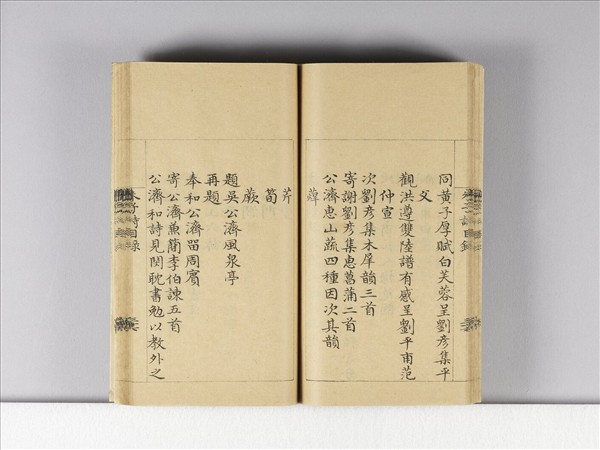 同黃子厚賦白芙蓉呈劉彥集平
父
觀洪遵雙陸譜有感呈劉平甫范
仲宣
次劉彥集木犀韻三首
寄謝劉彥集惠菖蒲二首
公濟惠山蔬四種因次其韻
蓴
芹
筍
蕨
題吳公濟風泉亭
再題
奉和公濟留周賓
寄公濟魚簡李伯諫五首
公濟和詩見閔耽書勉以教外之
詩目錄